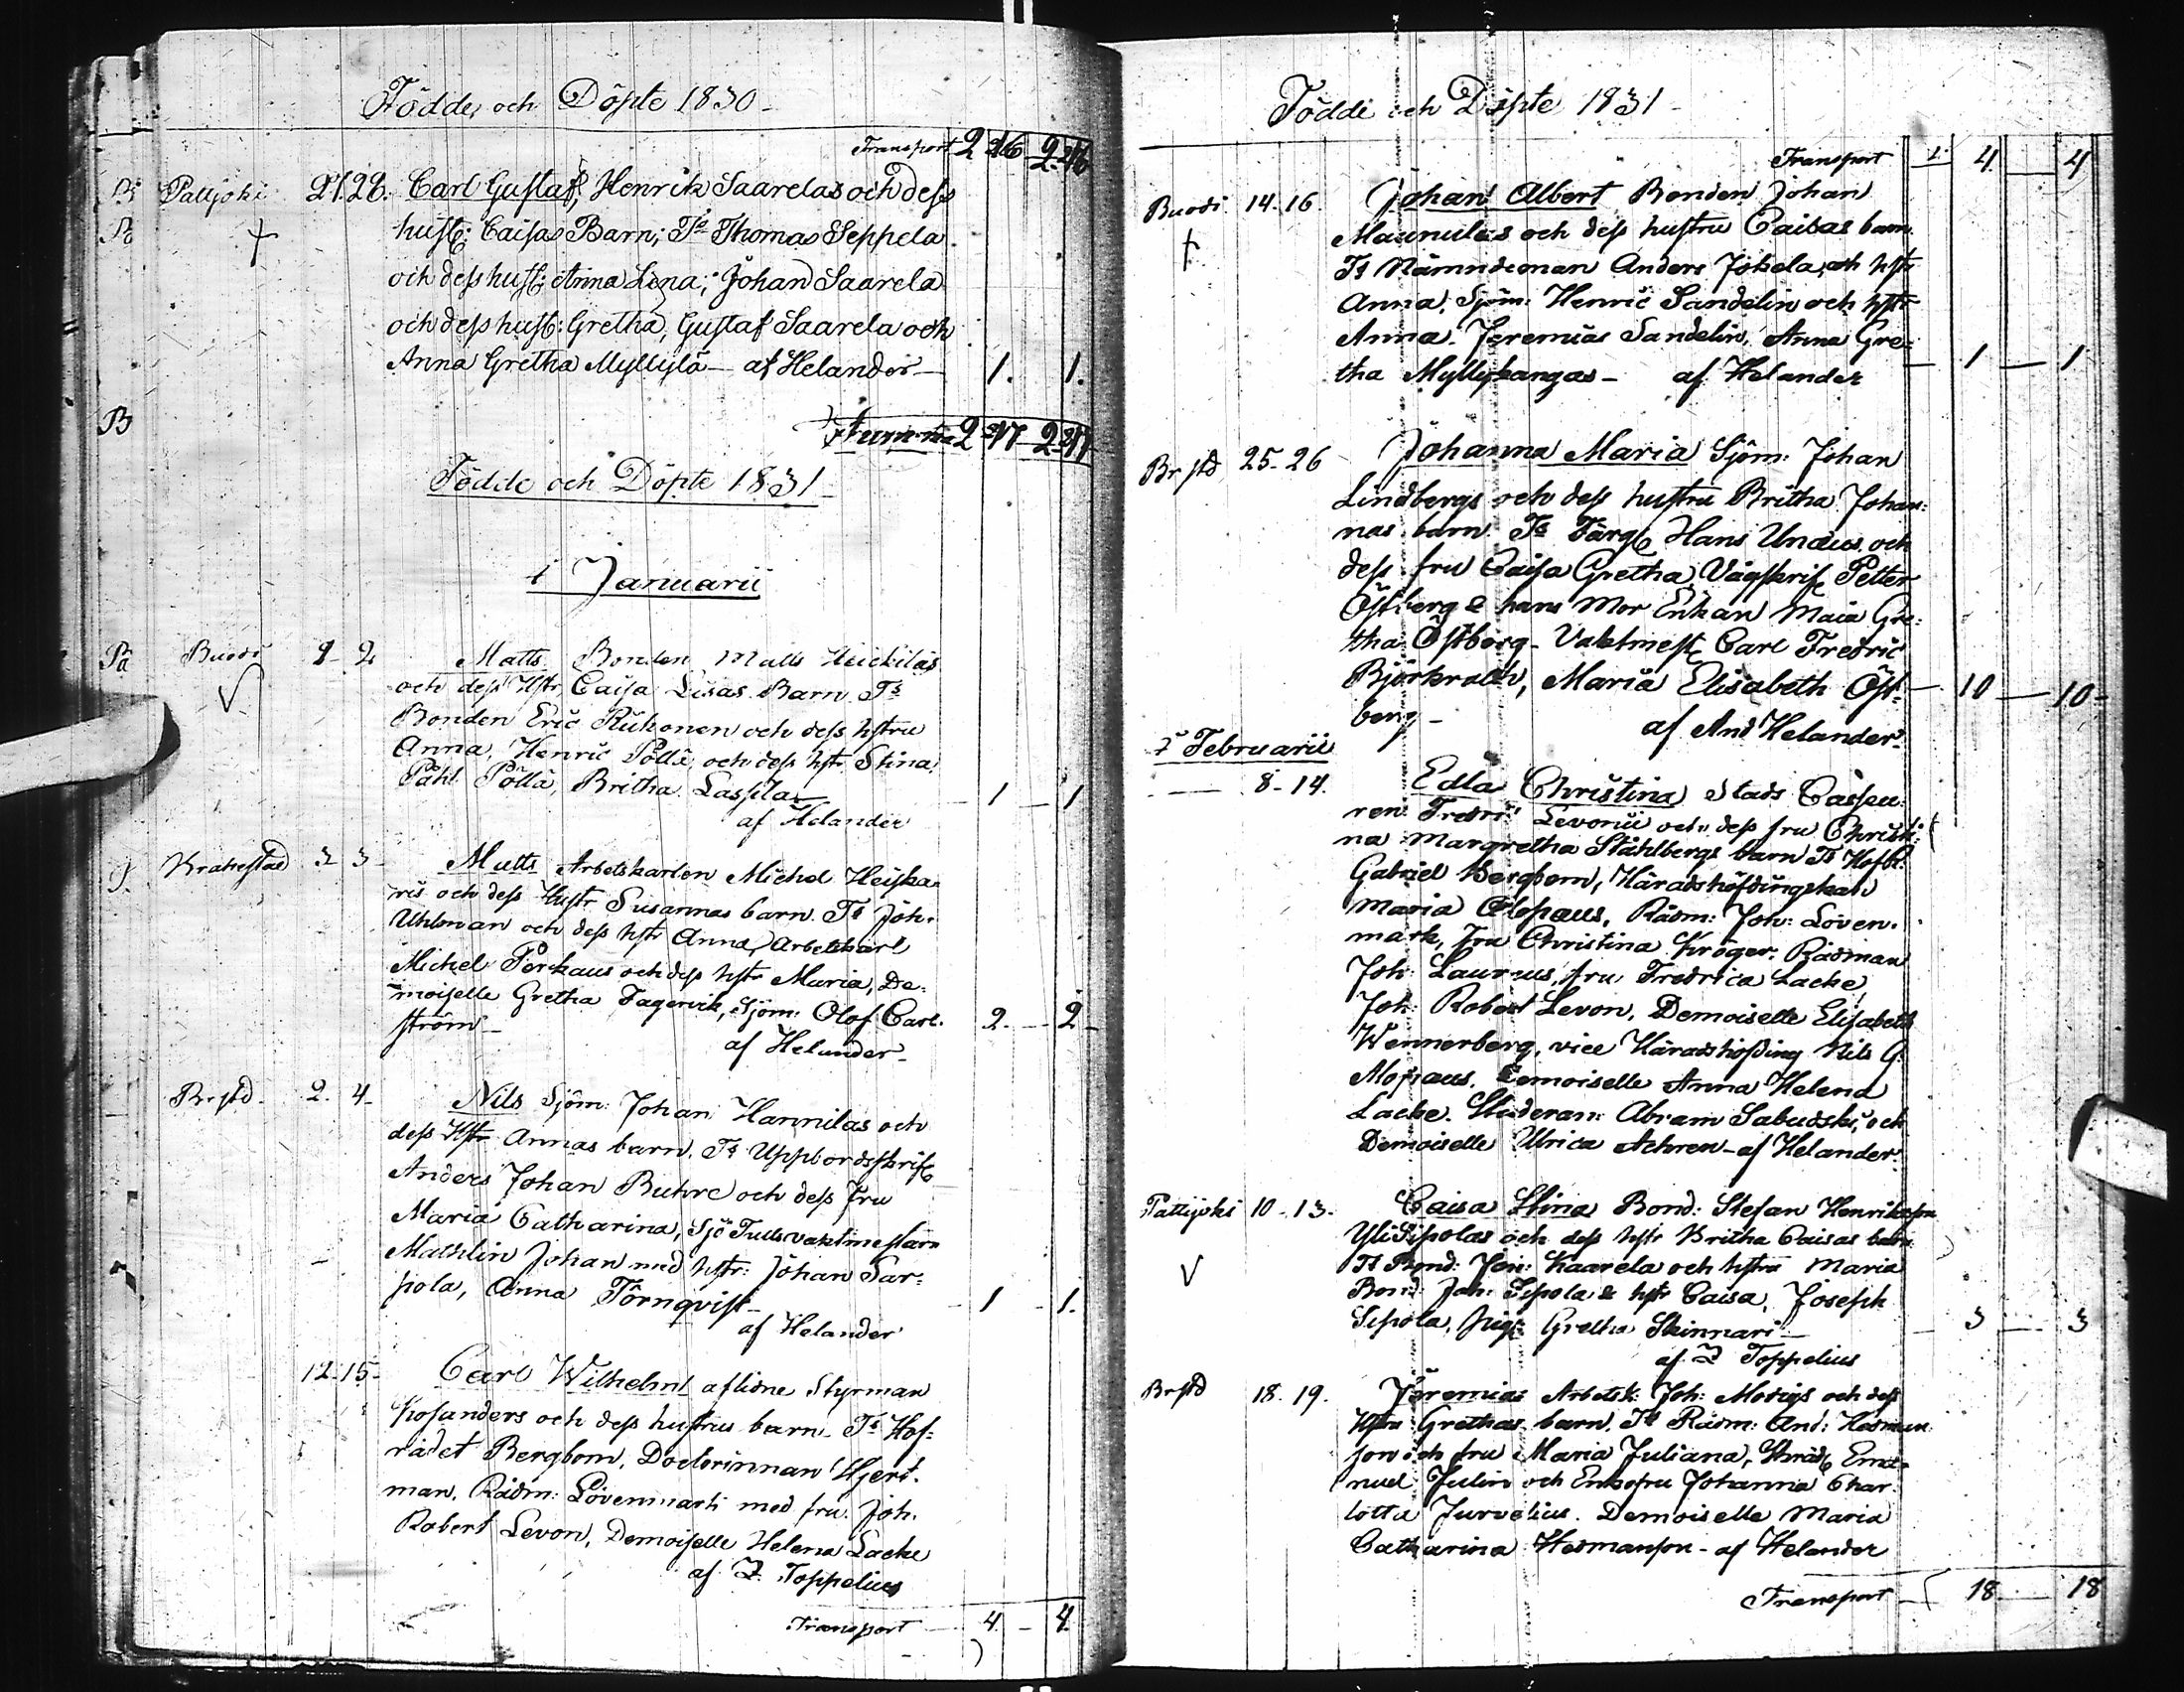 Födde och Döpte 1830
Transport 2 216 2 216
Pattjoki 27. 28. Carl Gustaf, Henrik Saarelas och dess
hust: Caisas Barn; Ts Thomas Seppela
och dess hust: Anna Lena; Johan Saarela
och dess hust: Gretha, Gustaf Saarela och
Anna Gretha Myllylä - af Helander - 1. 1.
B
Summa 2 217 2 217
Födde och Döpte 1831
i Januarii
Buodi 2 Matts Bonden Matts Heickiläs
och dess Hstr Caisa Lisas Barn Ts
Bonden Eric Ruhonen och dess hstru
Anna, Henric Pöllä och dess hstr Stina,
Påhl Pöllä, Britha Lassila 1 1
af Helander
Brahestad 3 3 Matts Arbetskarlen Michel Heiska-
ris och dess Hustr Susannas barn. Ts Joh.
Uhlman och dess hstr Anna, Arbetskarl
Michel Porkaus och dess hstr Maria, De-
moiselle Gretha Fagervik, Sjöm: Olof Carl-
ström - 2. 2
af Helander
Br.std 2. 4. Nils Sjöm: Johan Hannilas och
dess Hstr Annas barn. Ts Uppbördsskrif
Anders Johan Buhre och dess Fru
Maria Catharina, Sjö Tullsvaktmestarn
Mathlin Johan med hstr: Johan Sar-
pola, Anna Törnqvist - 1 1.
af Helander
12. 15 Carl Wilhelm aflidne Styrman
Kosanders och dess hustrus barn. Ts Hof-
rådet Bergbom, Doctorinnan Hjert-
man, Rådm: Lövenmark med fru. Joh.
Robert Levon, Demoiselle Helena Lacke
af Z. Toppelius
Transport 4. 4.
Födde och Döpte 1831
Transport 4 4
Buodi 14. 16. Johan Albert Bonden Johan
Maunulas och dess hustru Caisas barn
Ts Nämndeman Anders Jokela, och hstr
Anna, Sjöm: Henric Sandelin och hstr
Anna. Jeremias Sandelin, Anna Gre-
tha Myllykangas - af Helander 1 1
Br std 25. 26 Johanna Maria Sjöm: Johan
Lindbergs och dess hustru Britha Johan-
nas barn. Ts Färg Hans Unæus och
dess fru Caisa Gretha, Vågskrif Petter
Östberg & hans Mor Enkan Maia Gre-
tha Östberg - Vaktmest Carl Fredric
Maria Elisabeth Öst- 10 10
berg - af And Helander
i Februarii
8 - 14. Edla Christina Stads Casseu-
ren Fredric Levonii och dess fru Christi-
na Margretha Ståhlbergs barn Ts Hofr:
Gabriel Bergbom, Häradshöfdingskan
Maria Alopæus, Rådm: Joh: Löven-
mark, Fru Christina Kröger, Rådman
Joh: Lauræus, fru Fredrica Lacke,
Joh: Robert Levon, Demoiselle Elisabeth
Wennerberg, vice Häradshöfding Nils G.
Alopæus, Demoiselle Anna Helena
Lacke. Studeran: Abram Sabudski, och
Demoiselle Ulrica Achren - af Helander
Pattijoki 10 - 13. Caisa Stina Bond: Stefan Henriksson
YliSipolas och dess hstr Britha Caisas barn
Ts Bond: Joh: Kaarela och hstru Maria
Bond: Joh: Sipola & hstr Caisa, Joseph
Sipola, Pig: Gretha Skinnari 3 3
af Z Toppelius
Br std 18. 19. Jeremias Arbetsk: Joh: och dess
hstru Grethas barn. Ts Rådm: And: Hedman-
son och fru Maria Juliana, Skräd Ema-
nuel Julin och Enkefru Johanna Char-
lotta Jurvelius. Demoiselle Maria
Catharina Hedmanson - af Helander
Transport 18 18